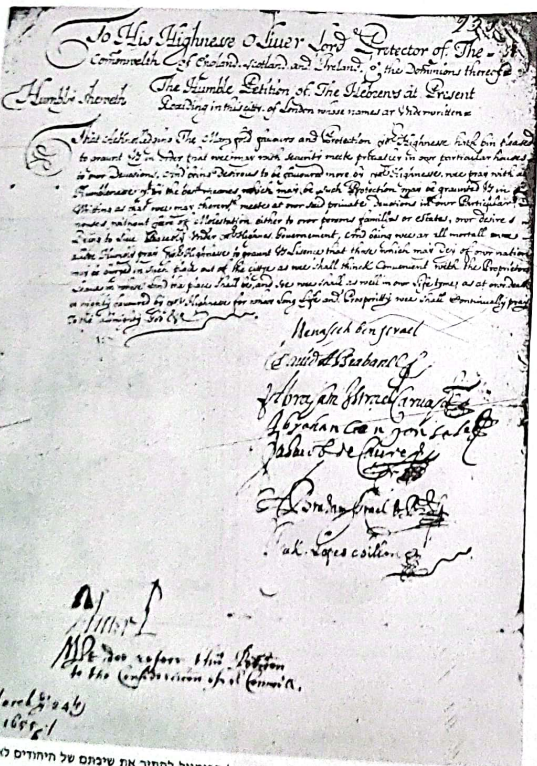 93
To His Highnesse Oliver Lord Protector of The
Comonwelth of England, Scotland and Ireland, & the Dominions thereof
The Humble Petition of The Hebrews at Present
Humbly sheweth
Reziding in this citty of London whose names ar Underwritten
That Acknolledging The Many fauours and Protection Highnesse hath bin pleased
to graunt Us in Order that wee may with security meete in our particular houses
to our Deuotions, And being Desirous to be fauoured more by Highnesse, wee pray with
Humblenesse by the best meanes which may be such Protection may be graunted Us in
Writing as that wee may meete at our said priuate Deuotions in our Particular
houses without feere of Molestation either to our persons famillies or estates, our desires
Being to Liue Peacebly Under Highnesse Gouernement, And being wee ar all mortall wee
allso Humbly pray Highnesse to graunt Us Lisence that those which may dey of our nation
may be buryed in such place out of the cittye as wee shall thinck Conuenient with the Proprietors
Leaue in whose Land the place shall be, and soe wee shall as well in our Life tyme, as at our death
be highly fauoured by Highnesse for whose Long Life and Prosperitty wee shall Continually pray
To the allmighty God
Menasseh ben Israel
David Abrabanel
Abraham Israel Caruajal
Abraham Coen Gonsales
Jahacob de Caceres
Abraham Israel
Isak Lopes Chillon
Oliver P
Wee doe referr this Peticon
to the Consideracon of the Councill.
March 24th
1655
את שיבתם של היהודים